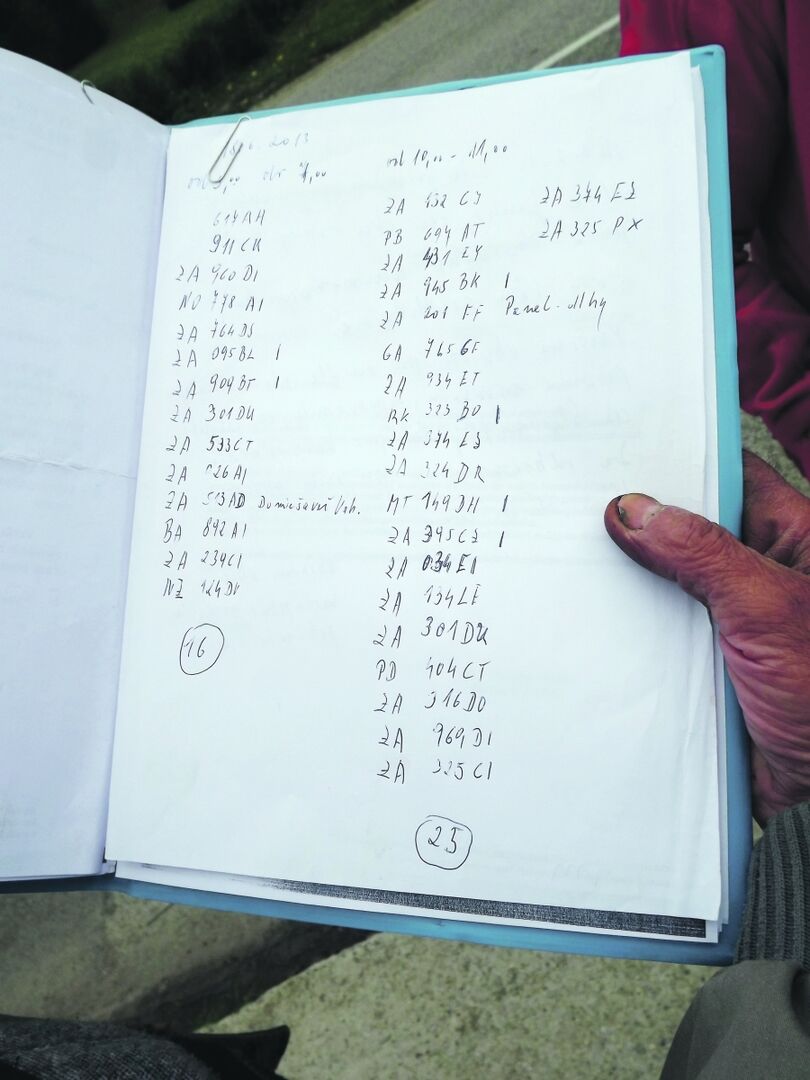 2013
od 9,00 do
617AH
911CK
ZA 960DI
NO 778 AI
ZA 764DS
ZA 095BL I
ZA 909BT I
ZA 301DU
ZA 533CT
ZA 026AI
ZA 513AD Domiešavač
BA 892AI
ZA 239CI
NZ 124DV
16
od 10,00 - 11,00
ZA 132 CJ
PB 694 AT
ZA 431 EY
ZA 945 BK I
ZA 201 FF Panel
GA 765 GF
ZA 934 ET
RK 323 BO I
ZA 374 EZ
ZA 324 DR
MT 149 DH I
ZA 395CZ I
ZA 034EA
ZA 134LE
ZA 301DU
PD 404CT
ZA 316DO
ZA 969DI
ZA 325CI
25
ZA 374 EZ
ZA 325 PX